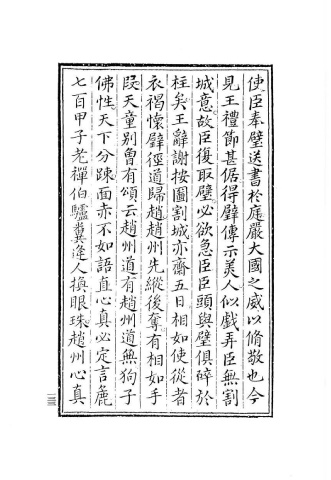 使臣奉璧送書於庭嚴大國之威以脩敬也今
見王禮節甚倨得璧傳示美人似戲弄臣無割
城意故臣復取璧必欲急臣臣頭與璧俱碎於
柱矣王辭謝按圖割城亦齋五日相如使從者
衣褐懷璧徑道歸趙趙州先縱後奪有相如手
段天童別曾有頌云趙州道有趙州道無狗子
佛性天下分踈面赤不如語直心真必定言麁
七百甲子老禪伯驢糞逢人換眼珠趙州心真